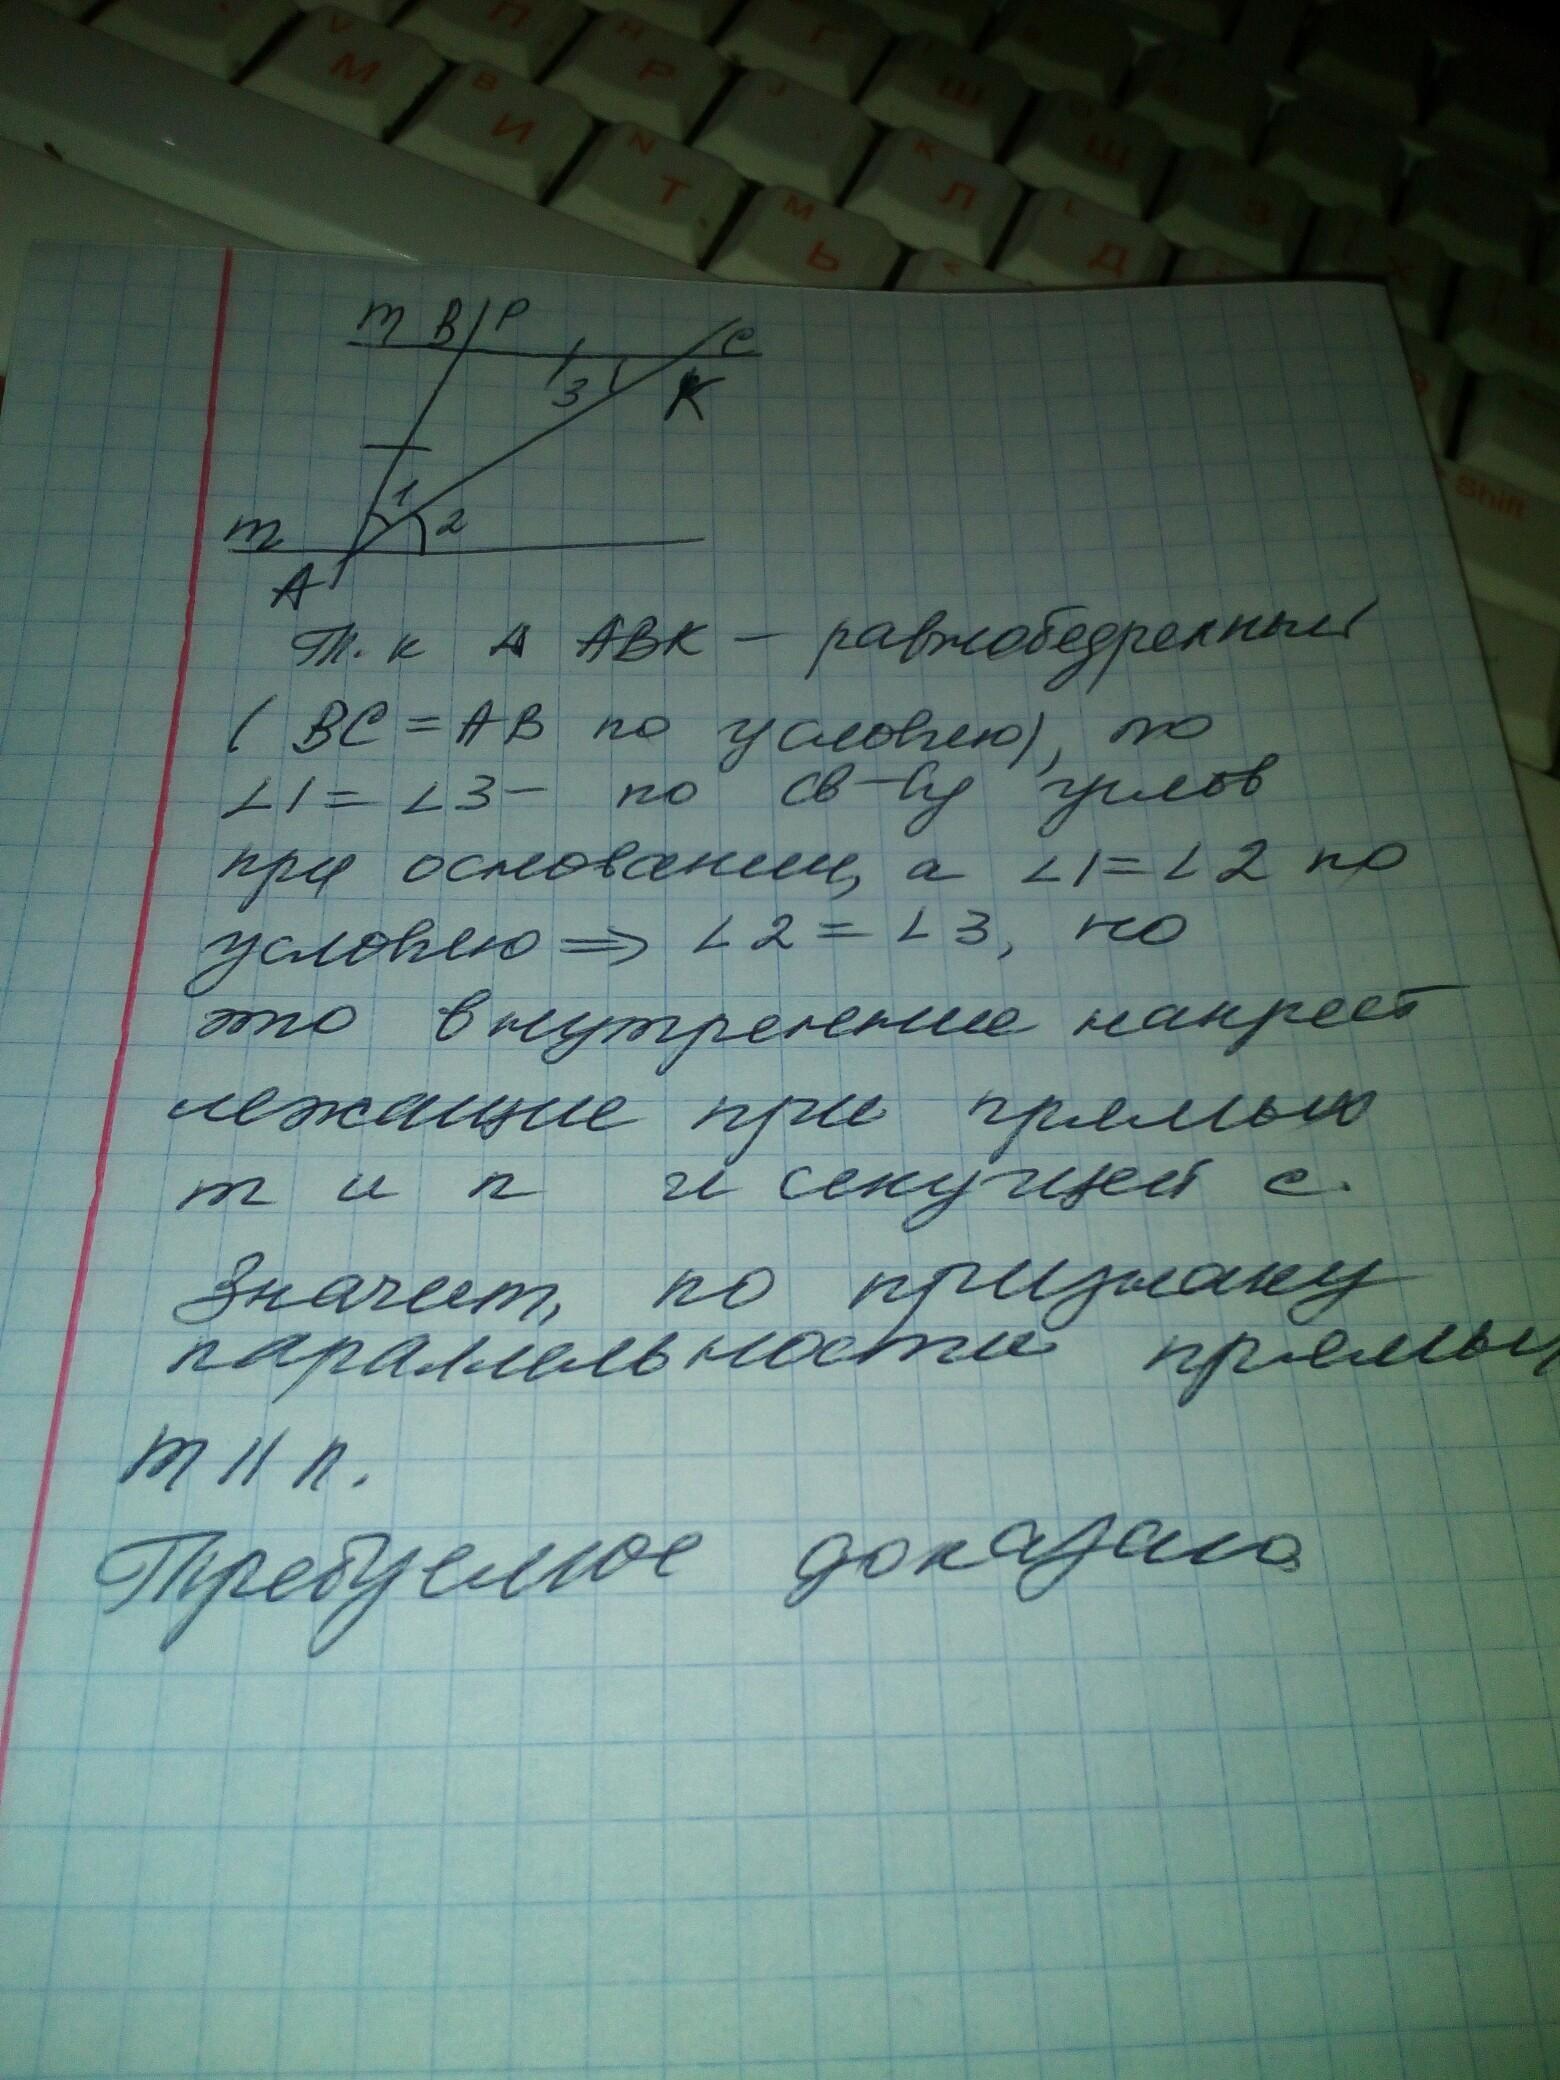 V
М
П
Н
Р
Г
В
И
J
Ш
N
Т
К
Л
Щ
М
Ь
L
Д
З
Х
<
Shift
m B P C
3 K
1
m 2
A
Т.к ∆ ABK – равнобедренный
( BC = AB по условию), то
∠1 = ∠3 – по св-ву углов
при основании, а ∠1 = ∠2 по
условию ⇒ ∠2 = ∠3, но
это внутренние накрест
лежащие при прямых
m и n и секущей c.
Значит, по признаку
параллельности прямых
m || n.
Требуемое доказано